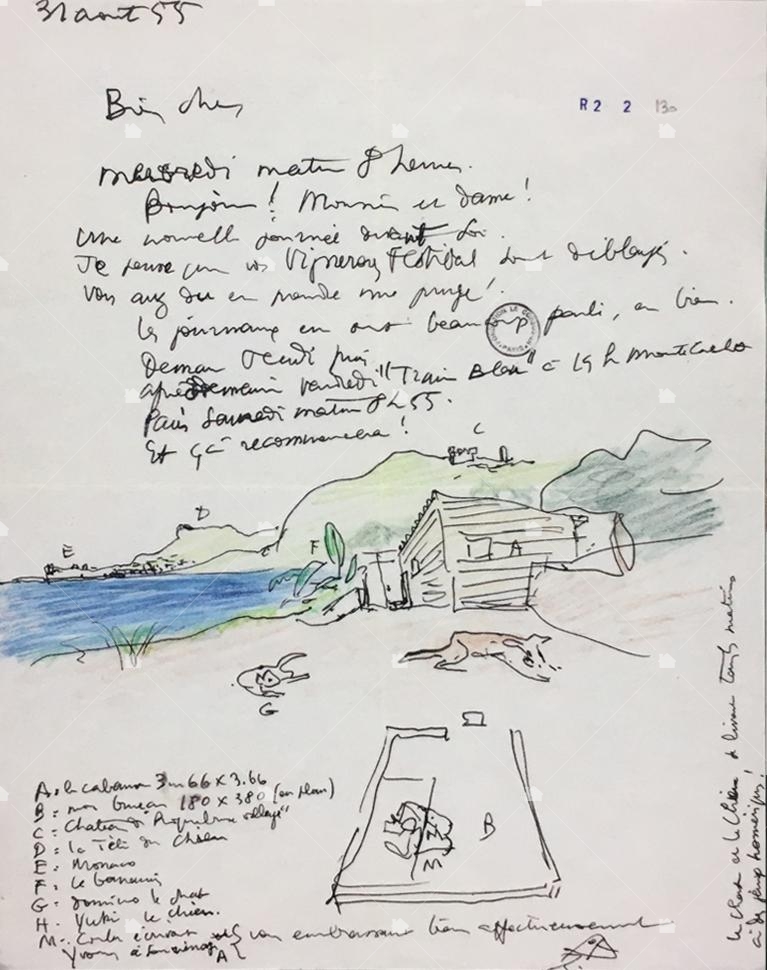 31 aout 55
Bien chers
R2 2 130
mercredi matin 8 heures.
Bonjour! Monsieur et dame!
Une nouvelle journée devant soi.
Je pense que vos Vigneroy Festival sont déblayés.
Vous avez du en prendre une purge!
les journaux en ont beaucoup parlé, en bien.
Demain Jeudi puis
après demain vendredi "Train Bleu" à 15 h Monte Carlo
Paris Samedi matin 8h 55.
Et ça recommencera!
C
D
E
F
A
G
B
M
A: le cabanon 3m66 x 3.66
B: mon bureau 180 x 380 (en plan)
C: Chateau de Roquebrune village
D: la Tête du Chien
E: Monaco
F: le bananier
G: domino le chat
H. Yuki le chien.
M: Corbu écrivant
Yvonne à
vous embrassent bien affectueusement
le Chat et le Chien se livrent tous les matins
à des jeux homériques!